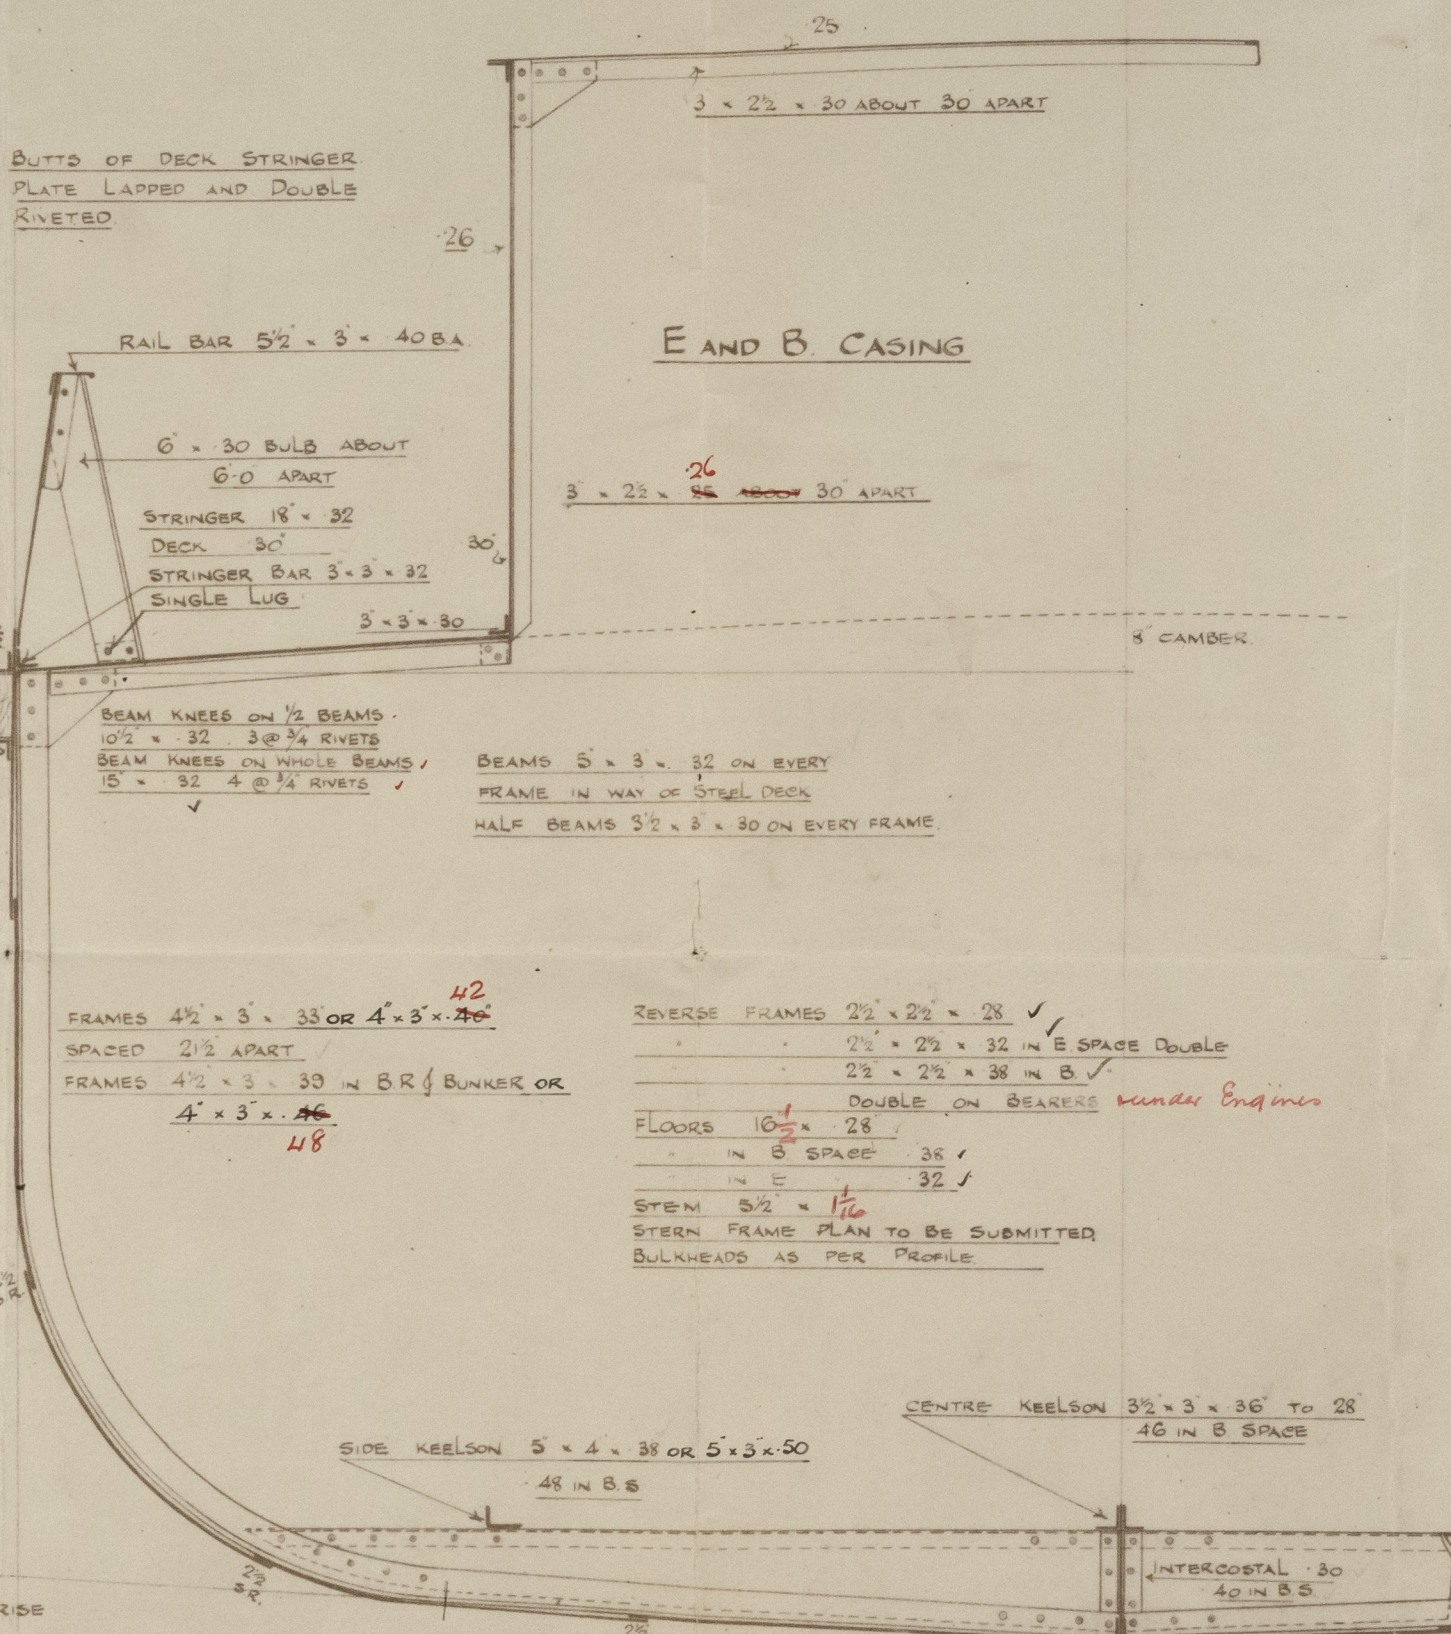 25
3 × 2½ × 30 ABOUT 30 APART
BUTTS OF DECK STRINGER
PLATE LAPPED AND DOUBLE
RIVETED.
·26
RAIL BAR 5½" × 3" × ·40 B.A.
E AND B. CASING
6" × ·30 BULB ABOUT
6'-0" APART
·26
3" × 2½ × 25 ABOUT 30" APART
STRINGER 18" × ·32
DECK ·30"
30"
STRINGER BAR 3" × 3" × 32
SINGLE LUG
3" × 3" × ·30
8" CAMBER.
BEAM KNEES ON ½ BEAMS.
10½" × ·32 . 3 @ ¾ RIVETS
BEAM KNEES ON WHOLE BEAMS ✓
15" × ·32 4 @ ¾" RIVETS ✓
✓
BEAMS 5" × 3" × ·32 ON EVERY
FRAME IN WAY OF STEEL DECK
HALF BEAMS 3½" × 3" × 30 ON EVERY FRAME.
42
FRAMES 4½" × 3" × ·33" OR 4" × 3" × ·40"
SPACED 21½" APART
FRAMES 4½" × 3 × ·39 IN B.R & BUNKER OR
4" × 3" × ·46
48
REVERSE FRAMES 2½" × 2½" × ·28 ✓
" " 2½" × 2½" × 32 IN E. SPACE DOUBLE ✓
2½" × 2½" × 38 IN B. ✓
DOUBLE ON BEARERS under Engines
FLOORS 16½ × ·28"
" IN B SPACE ·38 ✓
" IN E " ·32 ✓
STEM 5½" × 1 1/16
STERN FRAME PLAN TO BE SUBMITTED.
BULKHEADS AS PER PROFILE.
CENTRE KEELSON 3½" × 3" × ·36" TO 28"
46 IN B SPACE
SIDE KEELSON 5" × 4" × ·38 OR 5" × 3" × ·50
·48 IN B.S
INTERCOSTAL ·30
·40 IN B.S.
2½
S.R.
RISE
2½